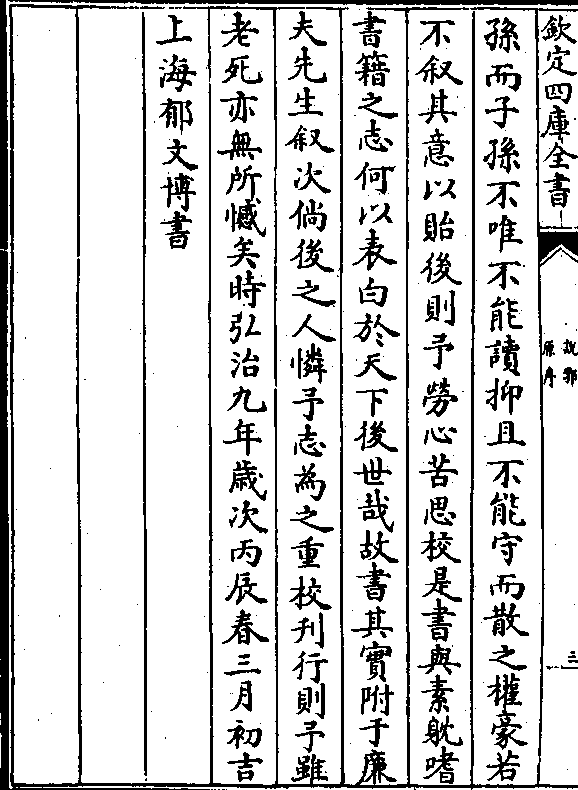 欽定四庫全書
說郛
原序
三
孫而子孫不唯不能讀抑且不能守而散之權豪若
不叙其意以貽後則予勞心苦思校是書與素躭嗜
書籍之志何以表白於天下後世哉故書其實附于廉
夫先生叙次倘後之人憐予志為之重校刋行則予雖
老死亦無所憾矣時弘治九年歲次丙辰春三月初吉
上海郁文博書